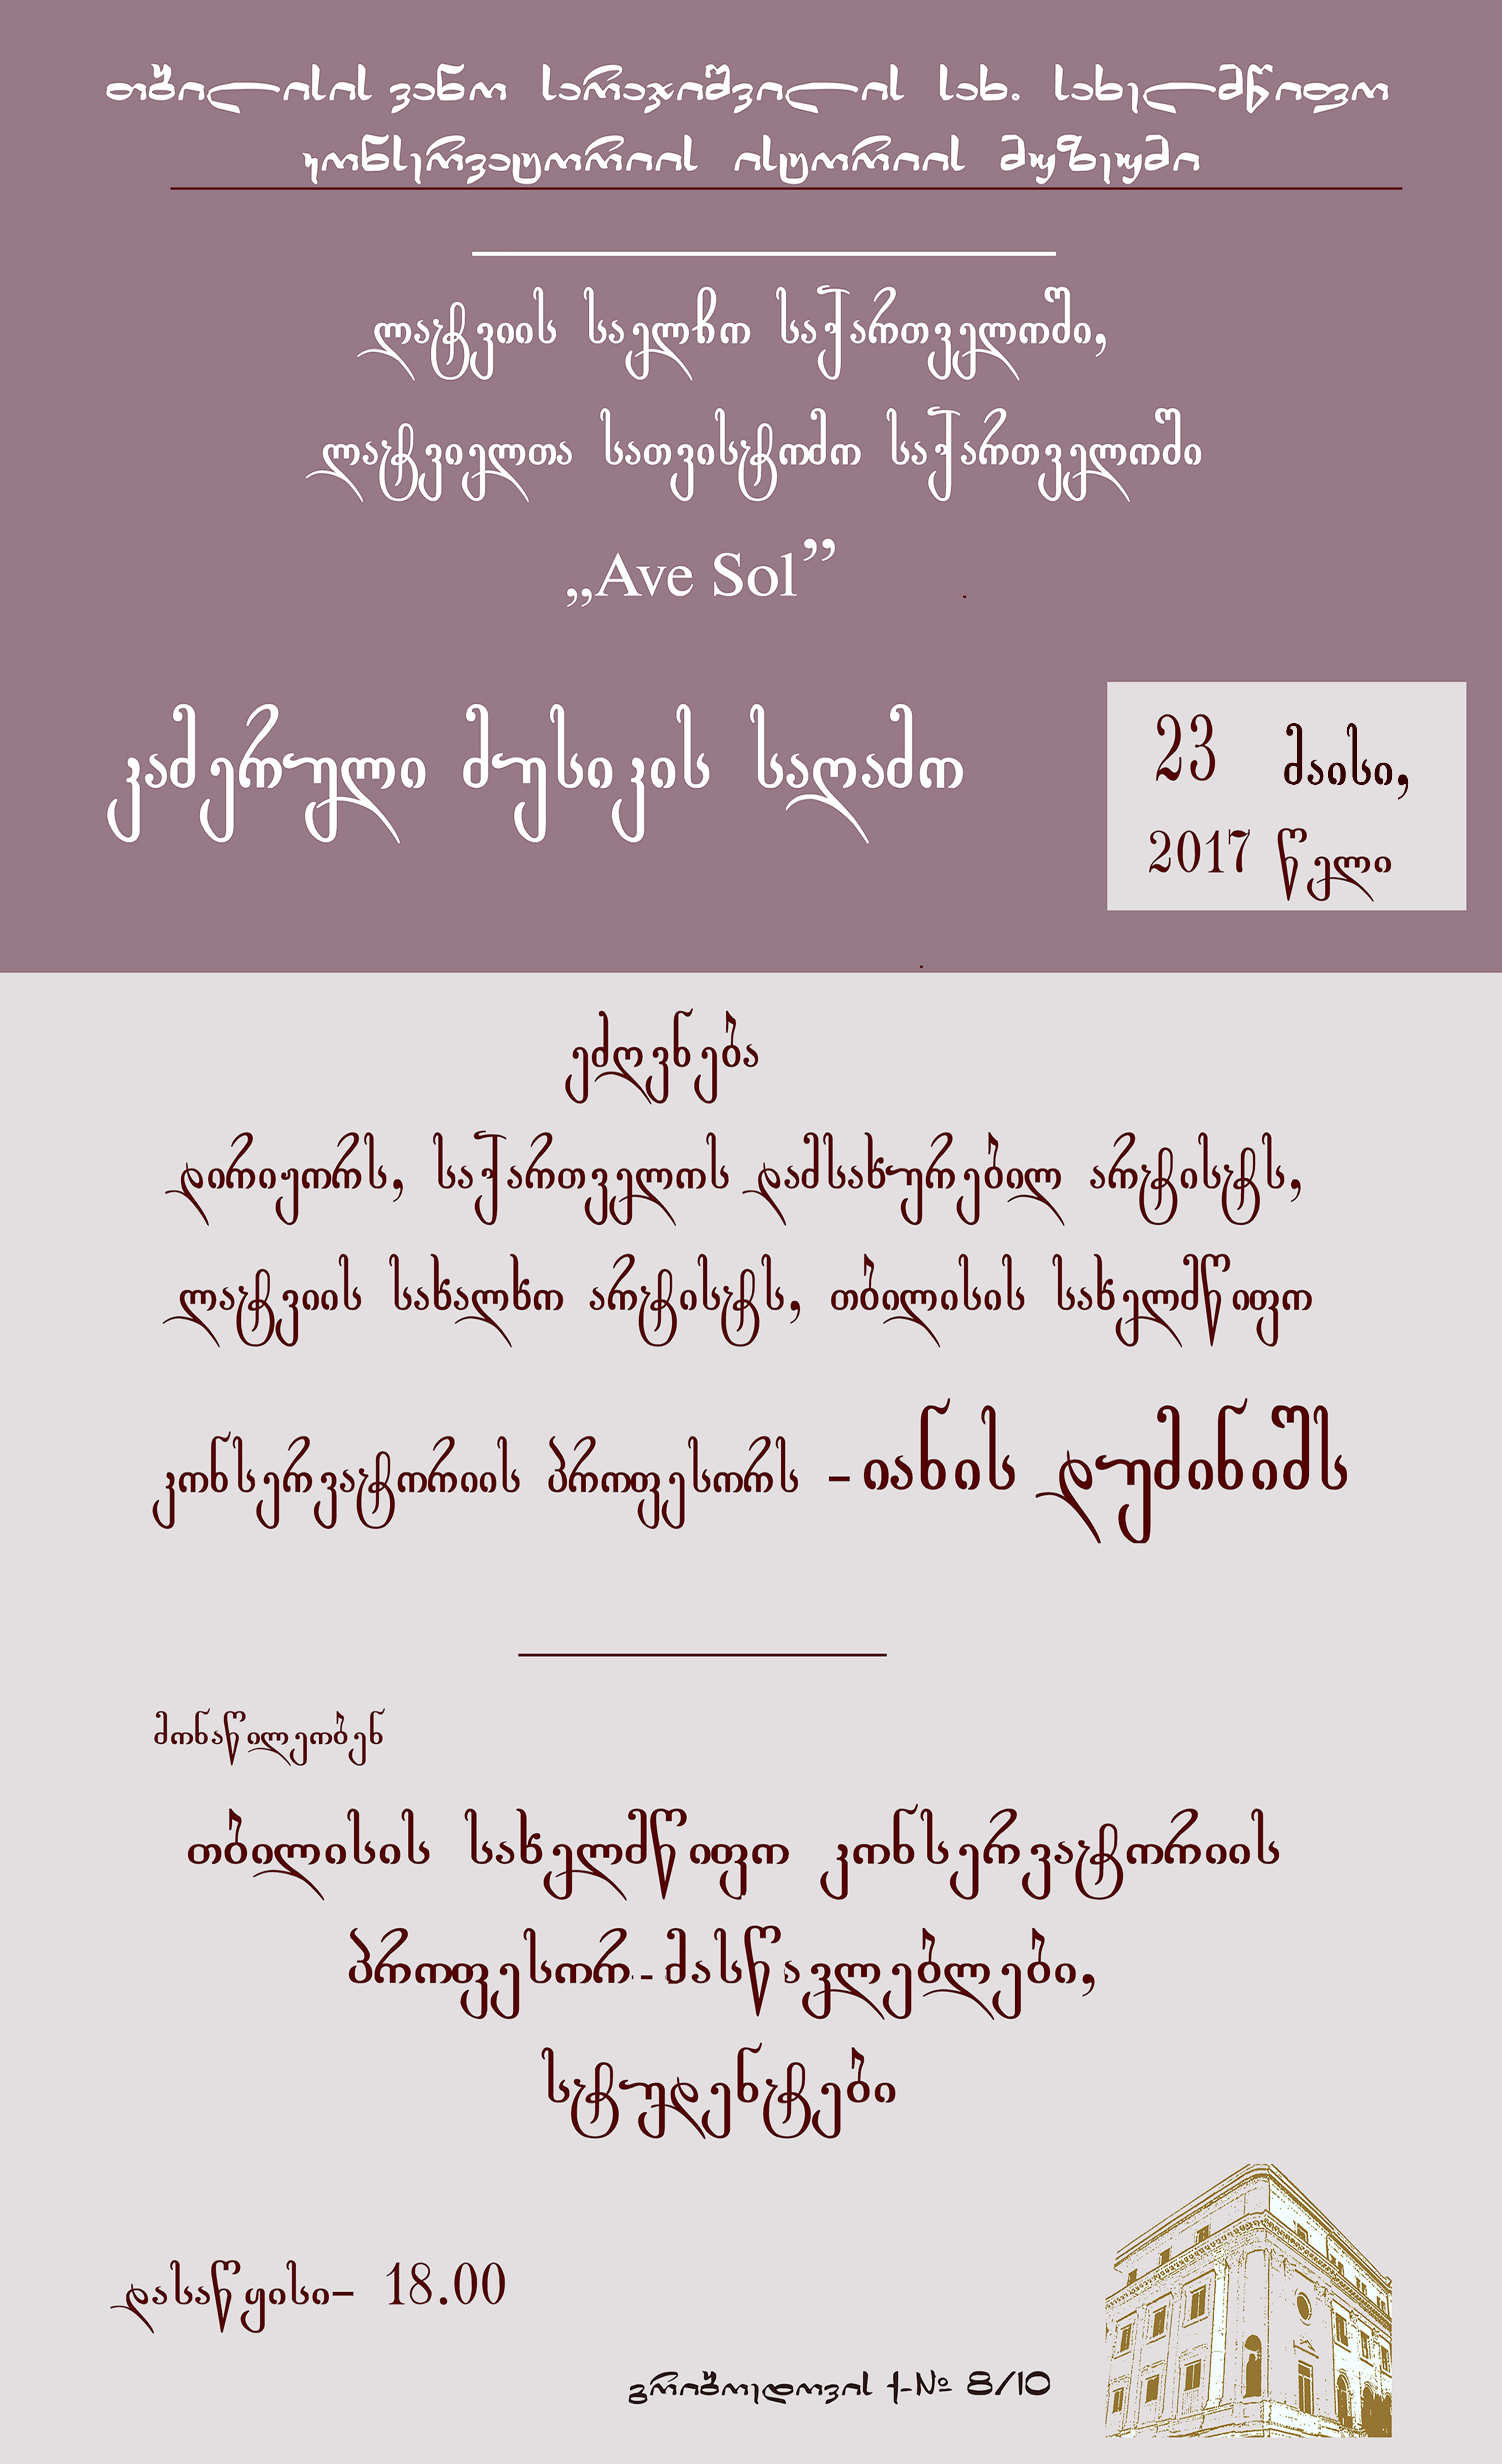 თბილისის ვანო სარაჯიშვილის სახ. სახელმწიფო
კონსერვატორიის ისტორიის მუზეუმი
ლატვიის საელჩო საქართველოში,
ლატვიელთა სათვისტომო საქართველოში
„Ave Sol”
კამერული მუსიკის საღამო
23 მაისი,
2017 წელი
ეძღვნება
დირიჟორს, საქართველოს დამსახურებულ არტისტს,
ლატვიის სახალხო არტისტს, თბილისის სახელმწიფო
კონსერვატორიის პროფესორს - იანის დუმინიშს
მონაწილეობენ
თბილისის სახელმწიფო კონსერვატორიის
პროფესორ-მასწავლებლები,
სტუდენტები
დასაწყისი- 18.00
გრიბოედოვის ქ-№ 8/10